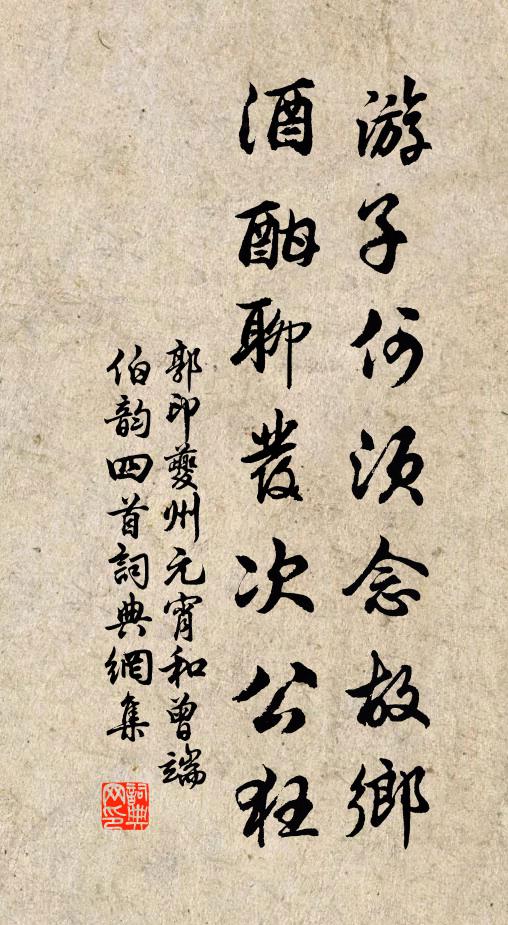 游子何须念故鄉
酒酣聊發次公狂
郭印夔州元宵和曾端
伯韵四首詞典網集
詞典
网印